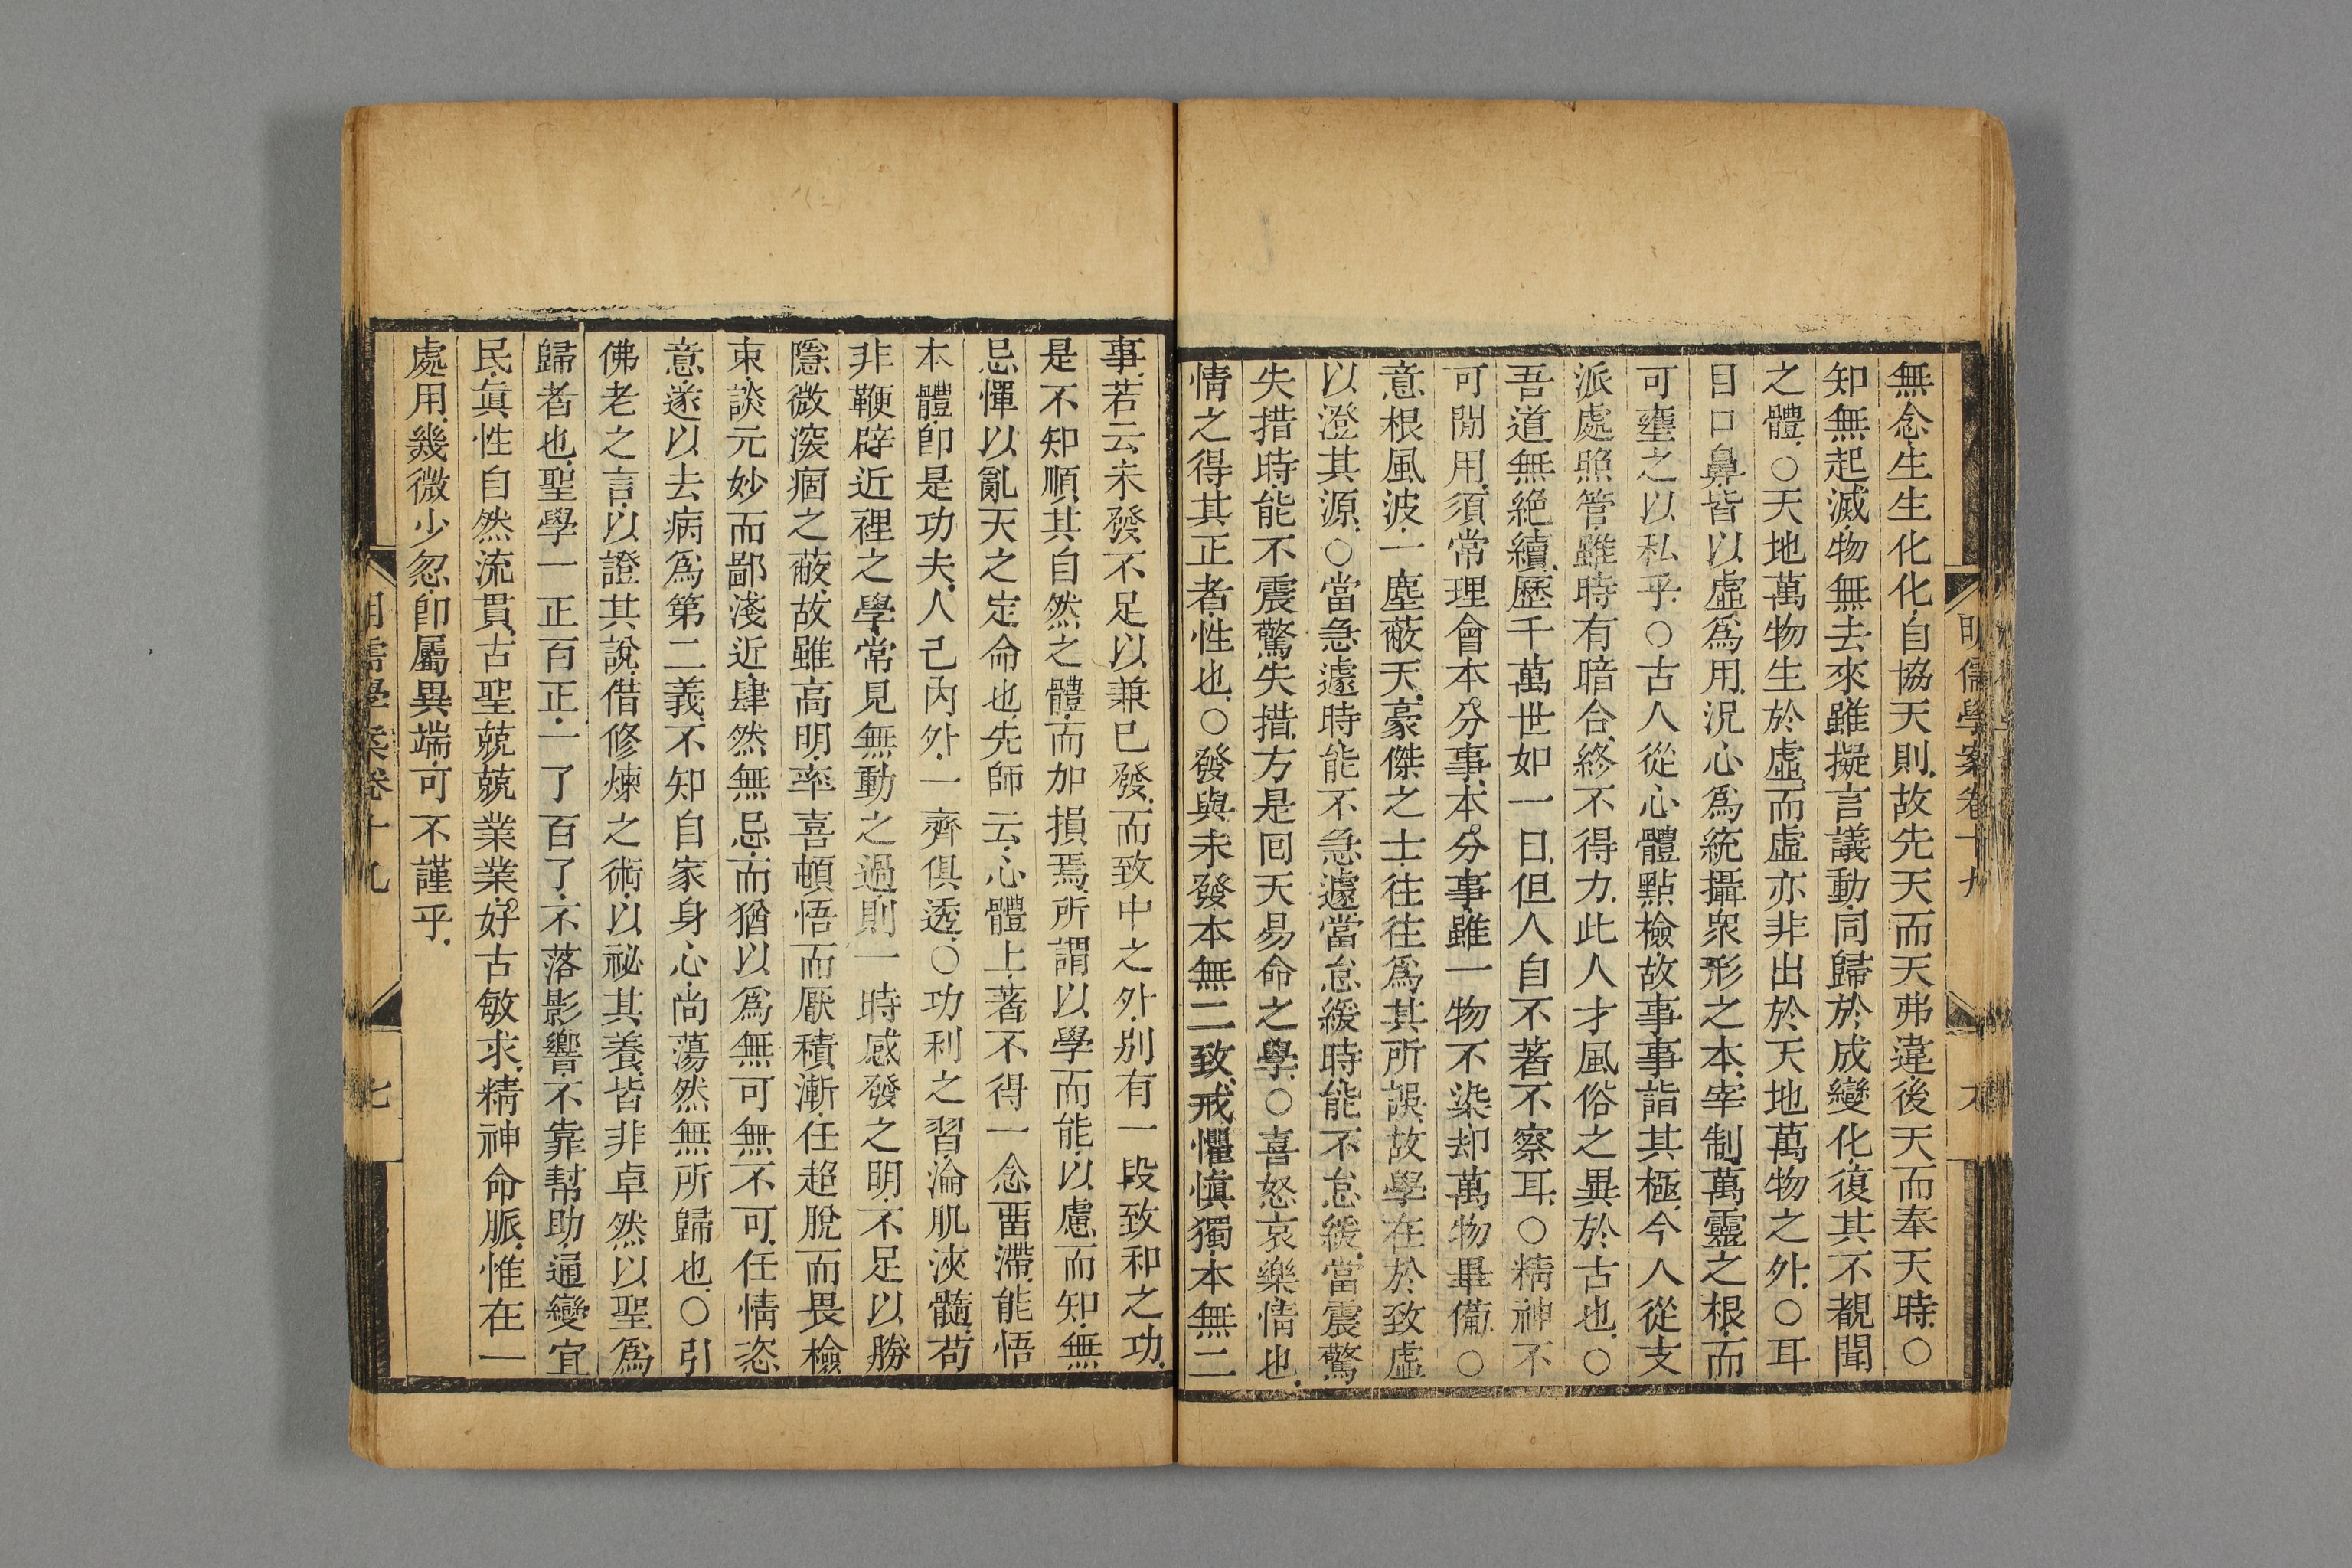 明儒學案卷十九
六
無念生生化化自協天則故先天而天弗違後天而奉天時○
知無起滅物無去來雖擬言議動同歸於成變化復其不覩聞
之體○天地萬物生於虛而虛亦非出於天地萬物之外○耳
目口鼻皆以虛爲用況心爲統攝衆形之本宰制萬靈之根而
可壅之以私乎○古人從心體點檢故事事詣其極今人從支
派處照管雖時有暗合終不得力此人才風俗之異於古也○
吾道無絕續歷千萬世如一日但人自不著不察耳○精神不
可閒用須常理會本分事本分事雖一物不染却萬物畢備○
意根風波一塵蔽天豪傑之士往往爲其所誤故學在於致虛
以澄其源○當急遽時能不急遽當怠緩時能不怠緩當震驚
失措時能不震驚失措方是回天易命之學○喜怒哀樂情也
情之得其正者性也○發與未發本無二致戒懼愼獨本無二
事若云未發不足以兼已發而致中之外別有一段致和之功
是不知順其自然之體而加損焉所謂以學而能以慮而知無
忌憚以亂天之定命也先師云心體上著不得一念畱滯能悟
本體卽是功夫人己內外一齊俱透○功利之習淪肌浹髓苟
非鞭辟近裡之學常見無動之過則一時感發之明不足以勝
隱微深痼之蔽故雖高明率喜頓悟而厭積漸任超脫而畏檢
束談元妙而鄙淺近肆然無忌而猶以爲無可無不可任情恣
意遂以去病爲第二義不知自家身心尚蕩然無所歸也○引
佛老之言以證其說借修煉之術以祕其養皆非卓然以聖爲
歸者也聖學一正百正一了百了不落影響不靠幫助通變宜
民眞性自然流貫古聖兢兢業業好古敏求精神命脈惟在一
處用幾微少忽卽屬異端可不謹乎
明儒學案卷十九
七